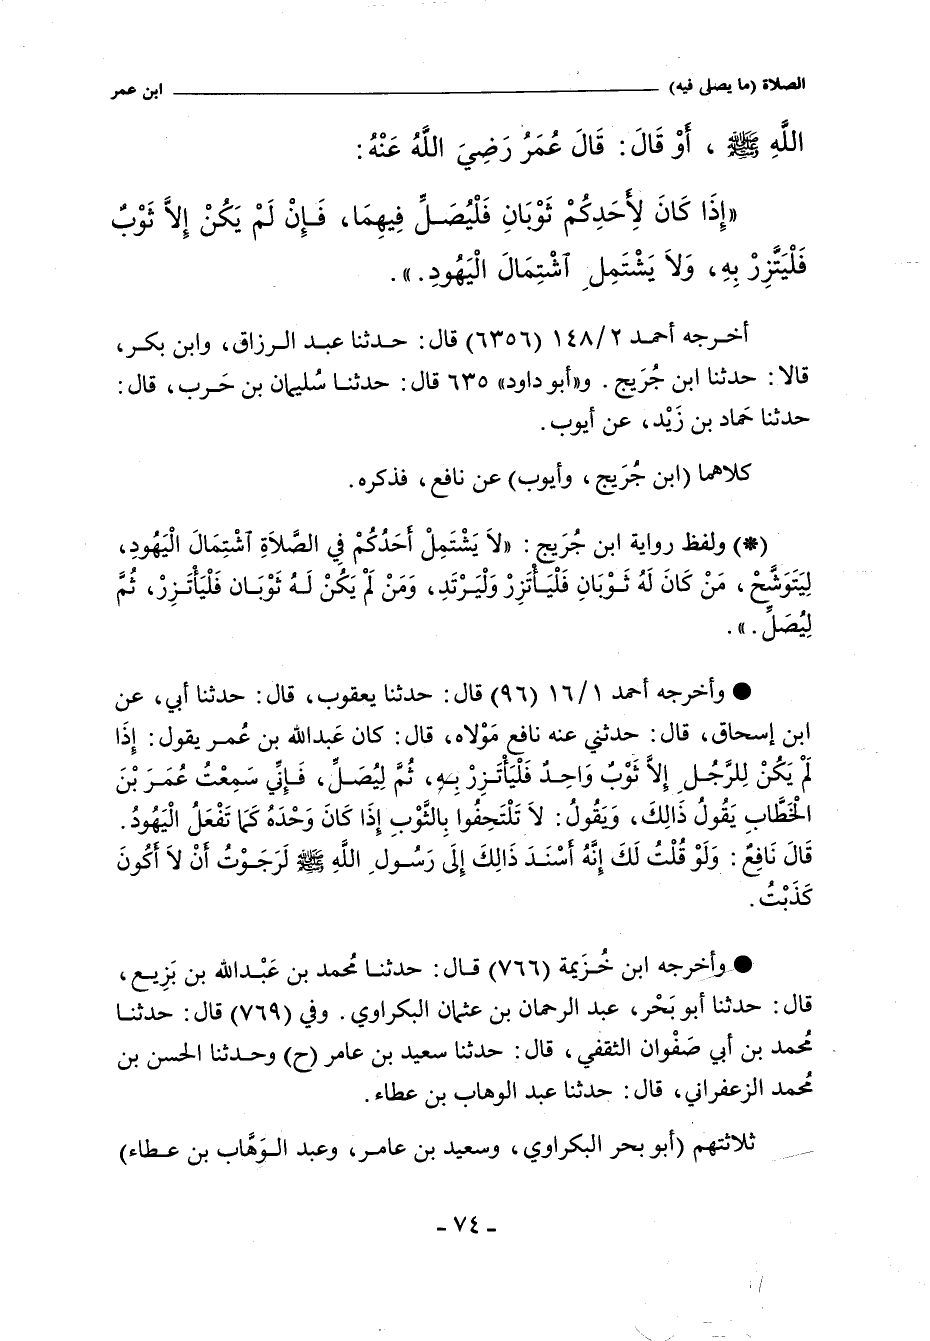 الصلاة (ما يصلى فيه) ــــــــــــــــــــ ابن عمر
اللَّهِ ﷺ ، أَوْ قَالَ : قَالَ عُمَرُ رَضِيَ اللَّهُ عَنْهُ :
«إِذَا كَانَ لِأَحَدِكُمْ ثَوْبَانِ فَلْيُصَلِّ فِيهِمَا، فَإِنْ لَمْ يَكُنْ إِلاَّ ثَوْبٌ
فَلْيَتَّزِرْ بِهِ، وَلاَ يَشْتَمِلِ ٱشْتِمَالَ الْيَهُودِ . ».
أخرجه أحمد ١٤٨/٢ (٦٣٥٦) قال : حدثنا عبد الرزاق، وابن بكر،
قالا : حدثنا ابن جُرَيج . و«أبو داود» ٦٣٥ قال : حدثنا سُليمان بن حَرب، قال :
حدثنا حماد بن زَيْد، عن أيوب .
كلاهما (ابن جُرَيج، وأيوب) عن نافع، فذكره .
(*) ولفظ رواية ابن جُرَيج : «لاَ يَشْتَمِلْ أَحَدُكُمْ فِي الصَّلاَةِ ٱشْتِمَالَ الْيَهُودِ،
لِيَتَوَشَّحْ، مَنْ كَانَ لَهُ ثَوْبَانِ فَلْيَأْتَزِرْ وَلْيَرْتَدِ، وَمَنْ لَمْ يَكُنْ لَهُ ثَوْبَانِ فَلْيَأْتَزِرْ، ثُمَّ
لِيُصَلِّ . ».
● وأخرجه أحمد ١٦/١ (٩٦) قال : حدثنا يعقوب، قال : حدثنا أبي، عن
ابن إسحاق، قال : حدثني عنه نافع مَوْلاه، قال : كان عَبدالله بن عُمر يقول : إِذَا
لَمْ يَكُنْ لِلرَّجُلِ إِلاَّ ثَوْبٌ وَاحِدٌ فَلْيَأْتَزِرْ بِهِ، ثُمَّ لِيُصَلِّ، فَإِنِّي سَمِعْتُ عُمَرَ بْنَ
الْخَطَّابِ يَقُولُ ذَالِكَ، وَيَقُولُ : لاَ تَلْتَحِفُوا بِالثَّوْبِ إِذَا كَانَ وَحْدَهُ كَمَا تَفْعَلُ الْيَهُودُ .
قَالَ نَافِعٌ : وَلَوْ قُلْتُ لَكَ إِنَّهُ أَسْنَدَ ذَالِكَ إِلَى رَسُولِ اللَّهِ ﷺ لَرَجَوْتُ أَنْ لاَ أَكُونَ
كَذَبْتُ .
● وأخرجه ابن خُزَيمة (٧٦٦) قال : حدثنا مُحمد بن عَبْدالله بن بَزِيع،
قال : حدثنا أبو بَحْر، عبد الرحمان بن عثمان البكراوي . وفي (٧٦٩) قال : حدثنا
مُحمد بن أبي صَفْوان الثقفي، قال : حدثنا سعيد بن عامر (ح) وحدثنا الحسن بن
مُحمد الزعفراني، قال : حدثنا عبد الوهاب بن عطاء .
ثلاثتهم (أبو بحر البكراوي، وسعيد بن عامر، وعبد الوَهَّاب بن عطاء)
- ٧٤ -